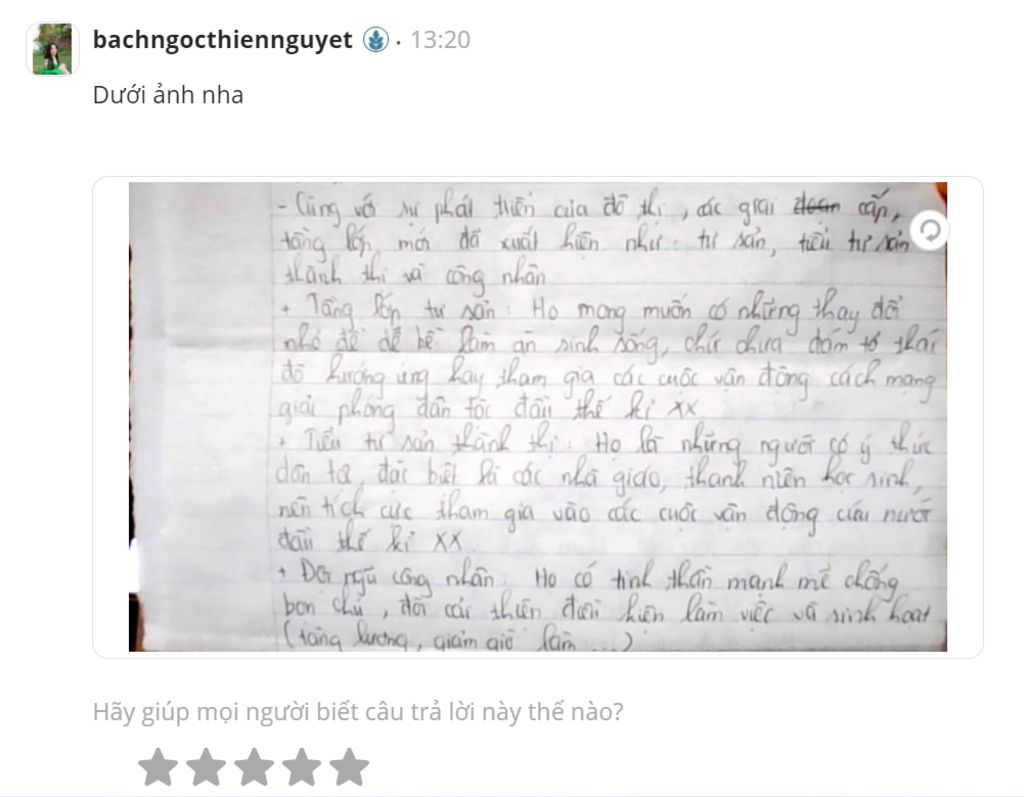 bachngocthiennguyet · 13:20
Dưới ảnh nha
- Cùng với sự phát triển của đô thị, các giai đoạn cấp,
tầng lớp mới đã xuất hiện như: tư sản, tiểu tư sản
thành thị và công nhân
+ Tầng lớp tư sản: Họ mong muốn có những thay đổi
nhỏ để dễ bề làm ăn sinh sống, chứ chưa dám tỏ thái
độ hưởng ứng hay tham gia các cuộc vận động cách mạng
giải phóng dân tộc đầu thế kỉ XX
+ Tiểu tư sản thành thị: Họ là những người có ý thức
dân tộc, đặc biệt là các nhà giáo, thanh niên học sinh,
nên tích cực tham gia vào các cuộc vận động cứu nước
đầu thế kỉ XX
+ Đội ngũ công nhân: Họ có tinh thần mạnh mẽ chống
bọn chủ, đòi cải thiện điều kiện làm việc và sinh hoạt
(tăng lương, giảm giờ làm...)
Hãy giúp mọi người biết câu trả lời này thế nào?